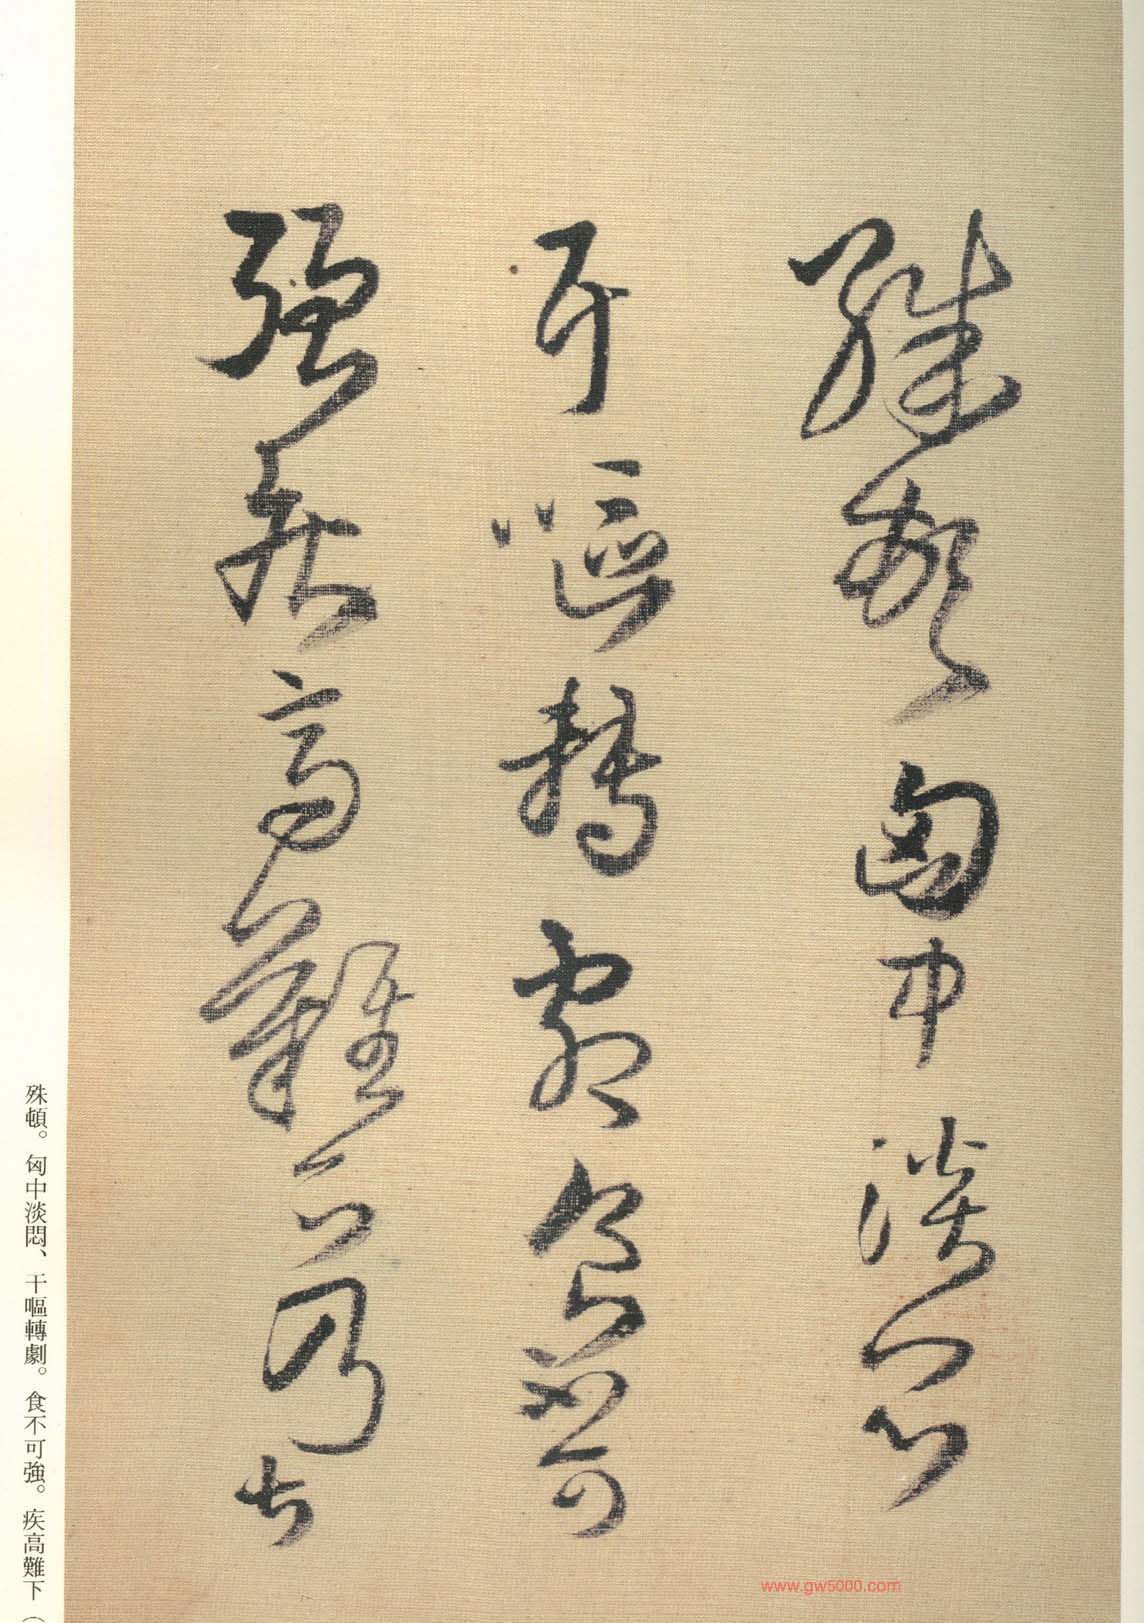 殊頓匈中淡悶
干嘔轉劇食不可
強疾高難下
殊頓。匈中淡悶、干嘔轉劇。食不可強。疾高難下（
www.gw5000.com